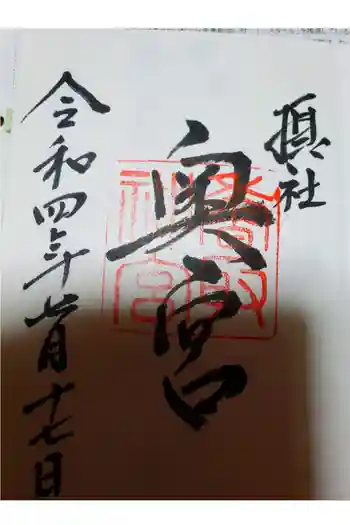 摂社
奥宮
令和四年七月十七日